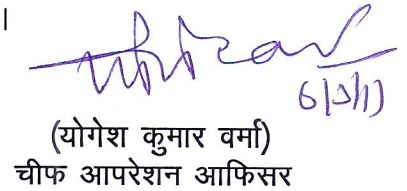 (योगेश कुमार वर्मा)
चीफ आपरेशन आफिसर